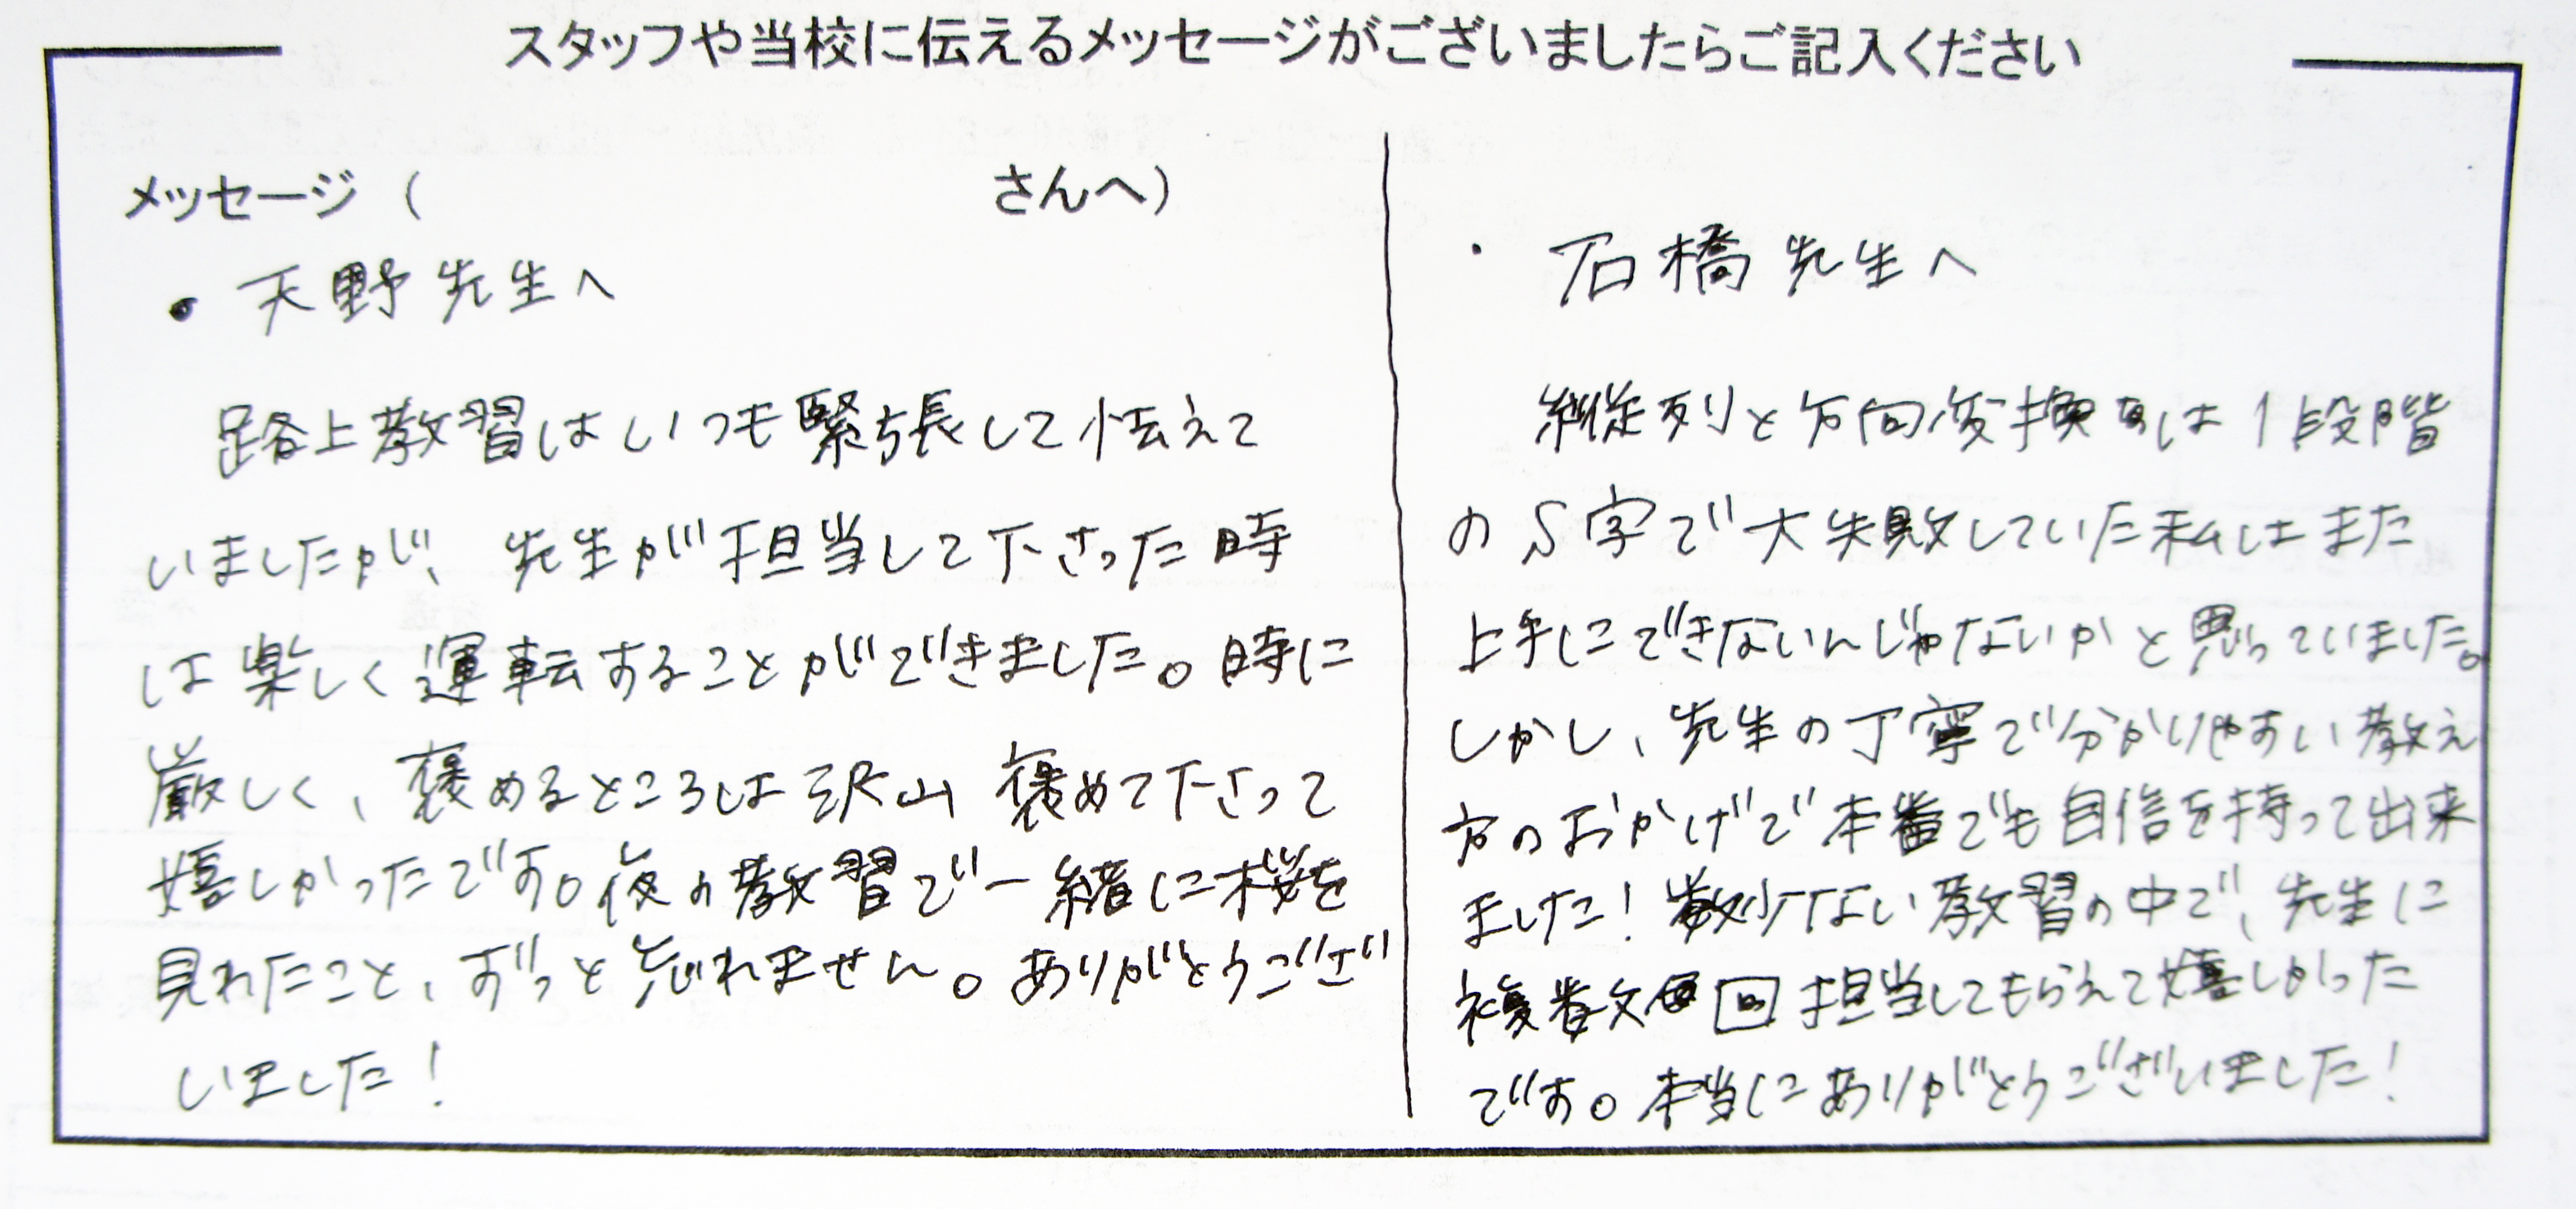 スタッフや当校に伝えるメッセージがございましたらご記入ください
メッセージ（　　　　　　　さんへ）
・天野先生へ
路上教習はいつも緊張して怯えて
いましたが、先生が担当して下さった時
は楽しく運転することができました。時に
厳しく、褒めるところは沢山褒めて下さって
嬉しかったです。夜の教習で一緒に桜を
見れたこと、ずっと忘れません。ありがとうござ
いました！
・石橋先生へ
縦列と方向変換は1段階
のS字で大失敗していた私はまた
上手にできないんじゃないかと思っていました。
しかし、先生の丁寧で分かりやすい教え
方のおかげで本番でも自信を持って出来
ました！数少ない教習の中で、先生に
複数回担当してもらえて嬉しかった
です。本当にありがとうございました！